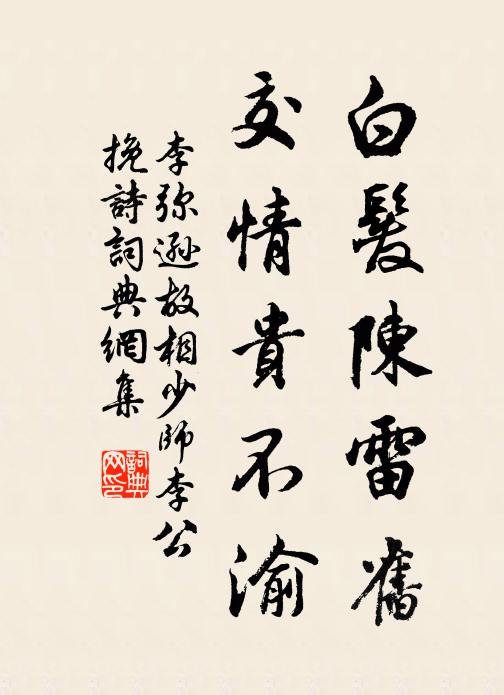 白髮陳雷舊
交情貴不渝
李弥遜故相少師李公
挽詩詞典網集
詞典
网印